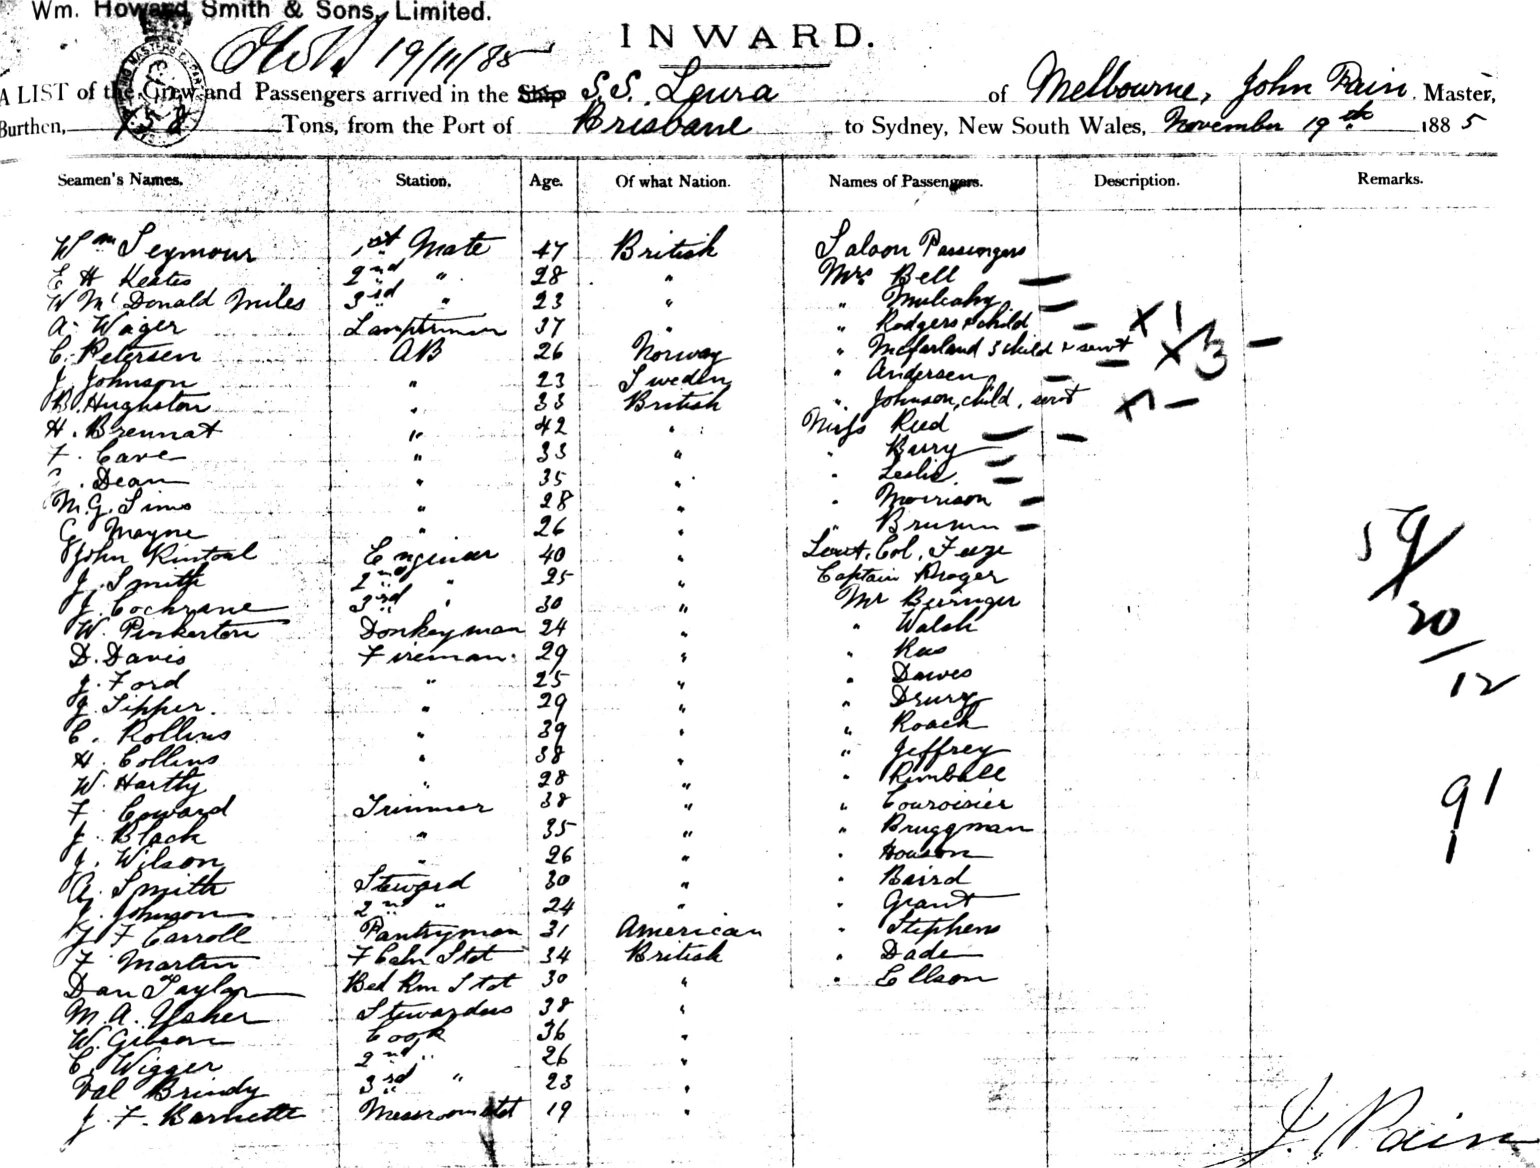 Wm. Howard Smith & Sons, Limited.
INWARD.
19/11/85
A LIST of the Crew and Passengers arrived in the Ship S.S. Leura of Melbourne, John Pain Master,
Burthen, Tons, from the Port of Brisbane to Sydney, New South Wales, November 19th 1885
Seamen's Names. Station. Age. Of what Nation. Names of Passengers. Description. Remarks.
Wm Seymour 1st Mate 47 British Saloon Passengers
E H Keates 2nd " 28 " Mrs Bell
W Mc Donald Miles 3rd " 23 " " Mulcahy
A. Wager Lamptrimmer 37 " " Rodgers & child X 1
C. Petersen AB 26 Norway " McFarland 3 child & servt X 3
J. Johnson " 23 Sweden " Andersen
B. Hughston " 33 British " Johnson, child, servt X 1
H. Brennat " 42 " Miss Reed
F. Cave " 33 " " Berry
Dean " 35 " " Leslie
M.G. Sims " 28 " " Morrison
G. Mayne " 26 " " Brunn
John Rintoul Engineer 40 " Lieut. Col. Feeze
J. Smith 2nd " 25 " Captain Kroger
J. Cochrane 3rd " 30 " Mr Beringer
W. Pinkerton Donkeyman 24 " " Walsh
D. Davis Fireman 29 " " Rees
J. Ford " 25 " " Dawes
J. Tipper. " 29 " " Drury
C. Rollins " 39 " " Roach
H. Collins " 38 " " Jeffrey
W. Hartly " 28 " " Kimball
F. Coward Trimmer 38 " " Couroisier
J. Black " 35 " " Bruggman
J. Wilson " 26 " " Houson
A. Smith Steward 30 " " Baird
J. Johnson 2nd " 24 " " Grant
J F Carroll Pantryman 31 American " Stephens
F. Martin F Cabn Stet 34 British " Dade
Dan Taylor Bed Rm Stet 30 " " Ellson
M. A. Usher Stewardess 38 "
W. Gibson Cook 36 "
C. Wigger 2nd " 26 "
Val Brindy 3rd " 23 "
J. F. Barnette Messroom Stet 19 "
59
20
12
91
J. Pain